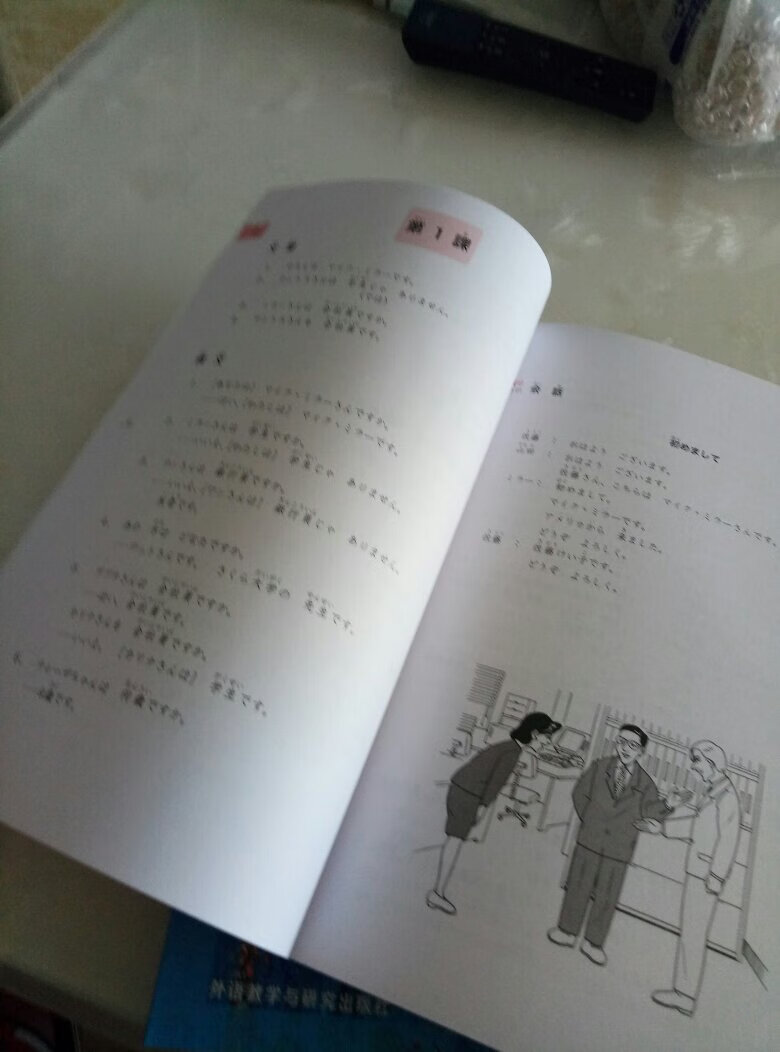 第1課
文型
1. わたしは マイク・ミラーです。
2. サントスさんは 学生じゃ ありません。
（では）
3. ミラーさんは 会社員ですか。
4. サントスさんも 会社員です。
例文
1. ［あなたは］ マイク・ミラーさんですか。
……はい、［わたしは］ マイク・ミラーです。
2. ミラーさんは 学生ですか。
……いいえ、［わたしは］ 学生じゃ ありません。
3. ワンさんは 銀行員ですか。
……いいえ、［ワンさんは］ 銀行員じゃ ありません。
医者です。
4. あの 方は どなたですか。
……ワットさんです。 さくら大学の 先生です。
5. グプタさんは 会社員ですか。
……はい、会社員です。
カリナさんも 会社員ですか。
……いいえ、［カリナさんは］ 学生です。
6. テレーザちゃんは 何歳ですか。
……9歳です。
会話
初めまして
佐藤： おはよう ございます。
山田： おはよう ございます。
佐藤さん、こちらは マイク・ミラーさんです。
ミラー： 初めまして。
マイク・ミラーです。
アメリカから 来ました。
どうぞ よろしく。
佐藤： 佐藤けい子です。
どうぞ よろしく。
外语教学与研究出版社